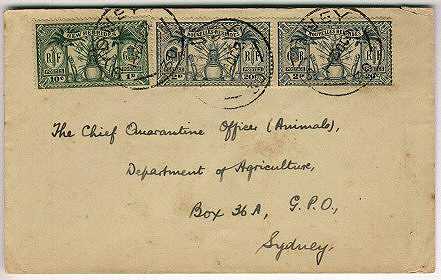 NEW HEBRIDES
RF
10c
1d
NOUVELLES HEBRIDES
RF
2d
20c
NOUVELLES HEBRIDES
RF
2d
20c
The Chief Quarantine Officer (Animals),
Department of Agriculture,
Box 36A, G.P.O.,
Sydney.